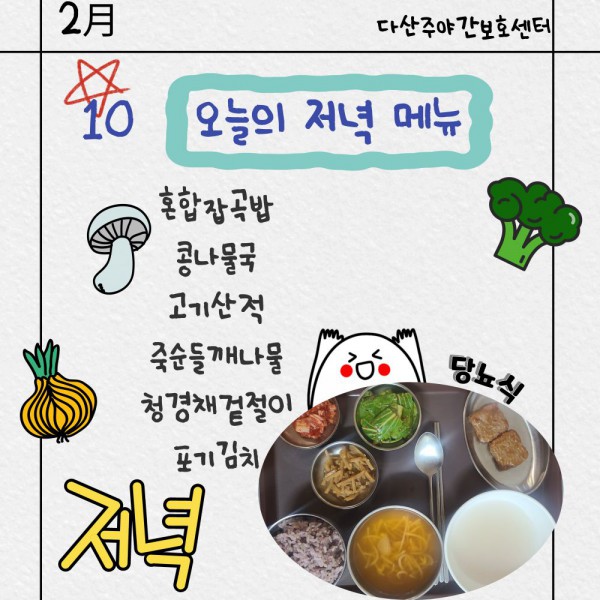 2月
다산주야간보호센터
10
오늘의 저녁 메뉴
혼합잡곡밥
콩나물국
고기산적
죽순들깨나물
청경채겉절이
포기김치
당뇨식
저녁